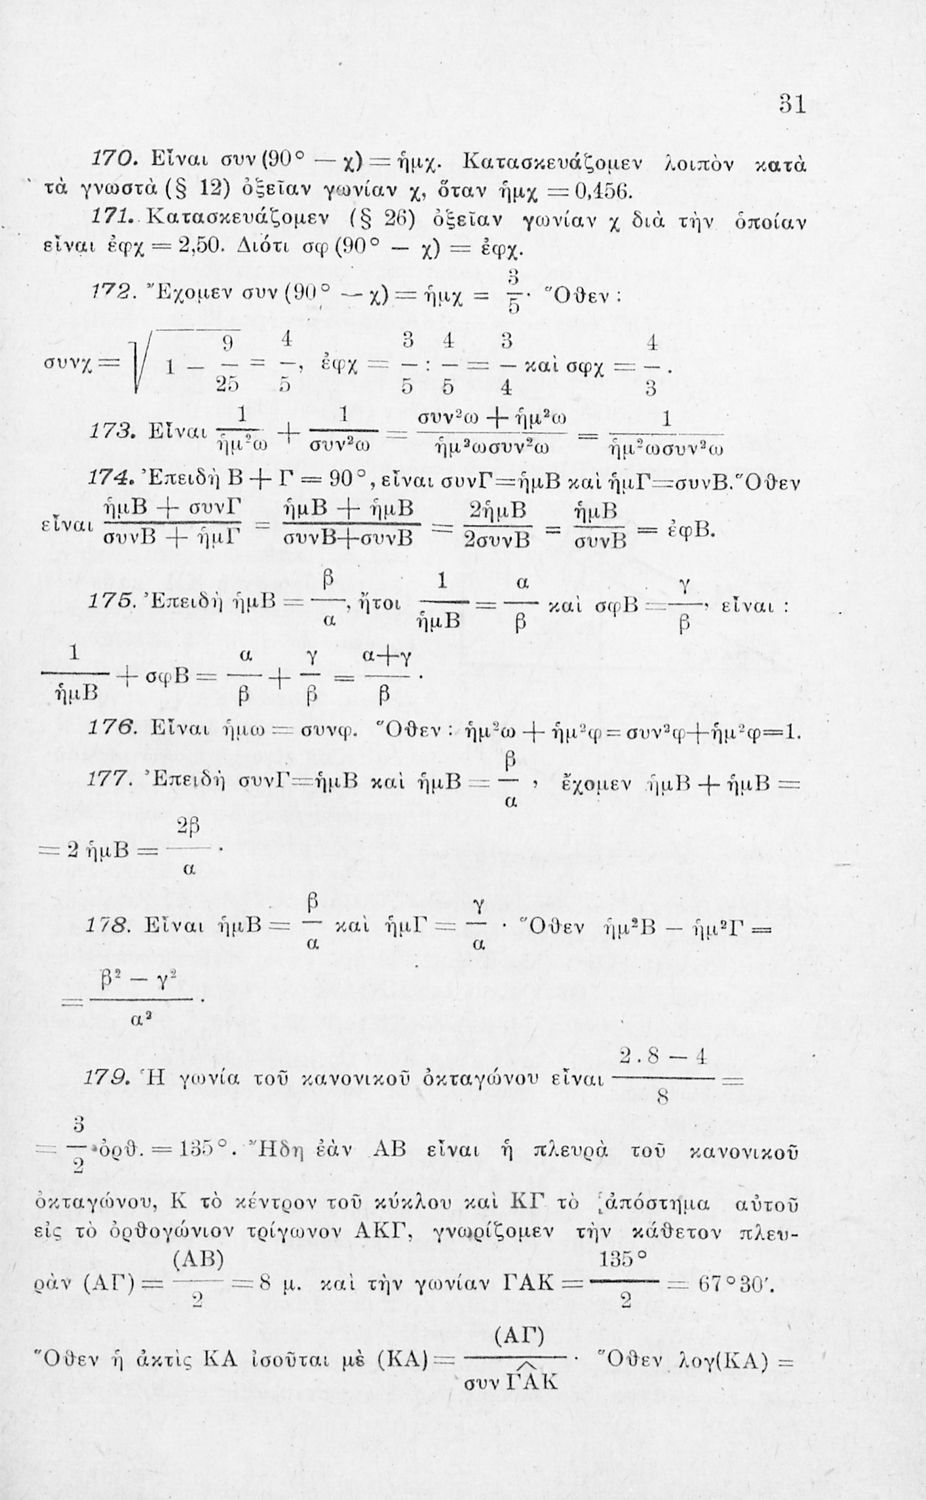 31
170. Εἶναι συν (90° — χ) = ἡμχ. Κατασκευάζομεν λοιπὸν κατὰ
τὰ γνωστὰ (§ 12) ὀξεῖαν γωνίαν χ, ὅταν ἡμχ = 0,456.
171. Κατασκευάζομεν (§ 26) ὀξεῖαν γωνίαν χ διὰ τὴν ὁποίαν
εἶναι ἐφχ = 2,50. Διότι σφ (90° — χ) = ἐφχ.
172. Ἔχομεν συν (90° — χ) = ἡμχ = 3/5. Ὅθεν :
συνχ = √(1 — 9/25) = 4/5, ἐφχ = 3/5 : 4/5 = 3/4 καὶ σφχ = 4/3.
173. Εἶναι 1/ἡμ²ω + 1/συν²ω = (συν²ω + ἡμ²ω)/ἡμ²ωσυν²ω = 1/ἡμ²ωσυν²ω
174. Ἐπειδὴ Β + Γ = 90°, εἶναι συνΓ=ἡμΒ καὶ ἡμΓ=συνΒ. Ὅθεν
εἶναι (ἡμΒ + συνΓ)/(συνΒ + ἡμΓ) = (ἡμΒ + ἡμΒ)/(συνΒ+συνΒ) = 2ἡμΒ/2συνΒ = ἡμΒ/συνΒ = ἐφΒ.
175. Ἐπειδὴ ἡμΒ = β/α, ἤτοι 1/ἡμΒ = α/β καὶ σφΒ = γ/β, εἶναι :
1/ἡμΒ + σφΒ = α/β + γ/β = (α+γ)/β.
176. Εἶναι ἡμω = συνφ. Ὅθεν : ἡμ²ω + ἡμ²φ = συν²φ+ἡμ²φ=1.
177. Ἐπειδὴ συνΓ=ἡμΒ καὶ ἡμΒ = β/α, ἔχομεν ἡμΒ + ἡμΒ =
= 2 ἡμΒ = 2β/α.
178. Εἶναι ἡμΒ = β/α καὶ ἡμΓ = γ/α. Ὅθεν ἡμ²Β — ἡμ²Γ =
= (β² — γ²)/α².
179. Ἡ γωνία τοῦ κανονικοῦ ὀκταγώνου εἶναι (2.8 — 4)/8 =
= 3/2 ὀρθ. = 135°. Ἤδη ἐὰν ΑΒ εἶναι ἡ πλευρὰ τοῦ κανονικοῦ
ὀκταγώνου, Κ τὸ κέντρον τοῦ κύκλου καὶ ΚΓ τὸ ἀπόστημα αὐτοῦ
εἰς τὸ ὀρθογώνιον τρίγωνον ΑΚΓ, γνωρίζομεν τὴν κάθετον πλευ-
ρὰν (ΑΓ) = (ΑΒ)/2 = 8 μ. καὶ τὴν γωνίαν ΓΑΚ = 135°/2 = 67°30′.
Ὅθεν ἡ ἀκτὶς ΚΑ ἰσοῦται μὲ (ΚΑ) = (ΑΓ)/συν ΓΑ̂Κ. Ὅθεν λογ(ΚΑ) =